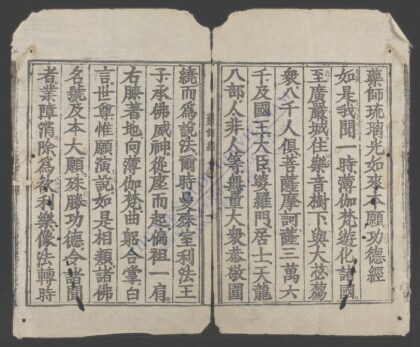 藥師琉璃光如來本願功德經
如是我聞一時薄伽梵遊化諸國
至廣嚴城住樂音樹下與大苾蒭
衆八千人俱菩薩摩訶薩三萬六
千及國王大臣婆羅門居士天龍
八部人非人等無量大衆恭敬圍
繞而爲說法爾時曼殊室利法王
子承佛威神從座而起偏袒一肩
右膝著地向薄伽梵曲躬合掌白
言世尊惟願演說如是相類諸佛
名號及本大願殊勝功德令諸聞
者業障消除爲欲利樂像法轉時